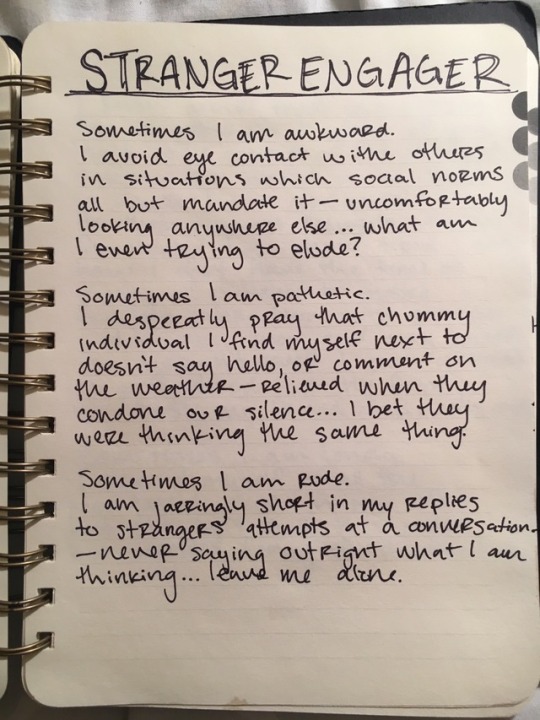 STRANGER ENGAGER
Sometimes I am awkward.
I avoid eye contact withe others
in situations which social norms
all but mandate it — uncomfortably
looking anywhere else... what am
I even trying to elude?
Sometimes I am pathetic.
I desperatly pray that chummy
individual I find myself next to
doesn't say hello, or comment on
the weather — relieved when they
condone our silence... I bet they
were thinking the same thing.
Sometimes I am rude.
I am jarringly short in my replies
to strangers' attempts at a conversation.
— never saying outright what I am
thinking... leave me alone.